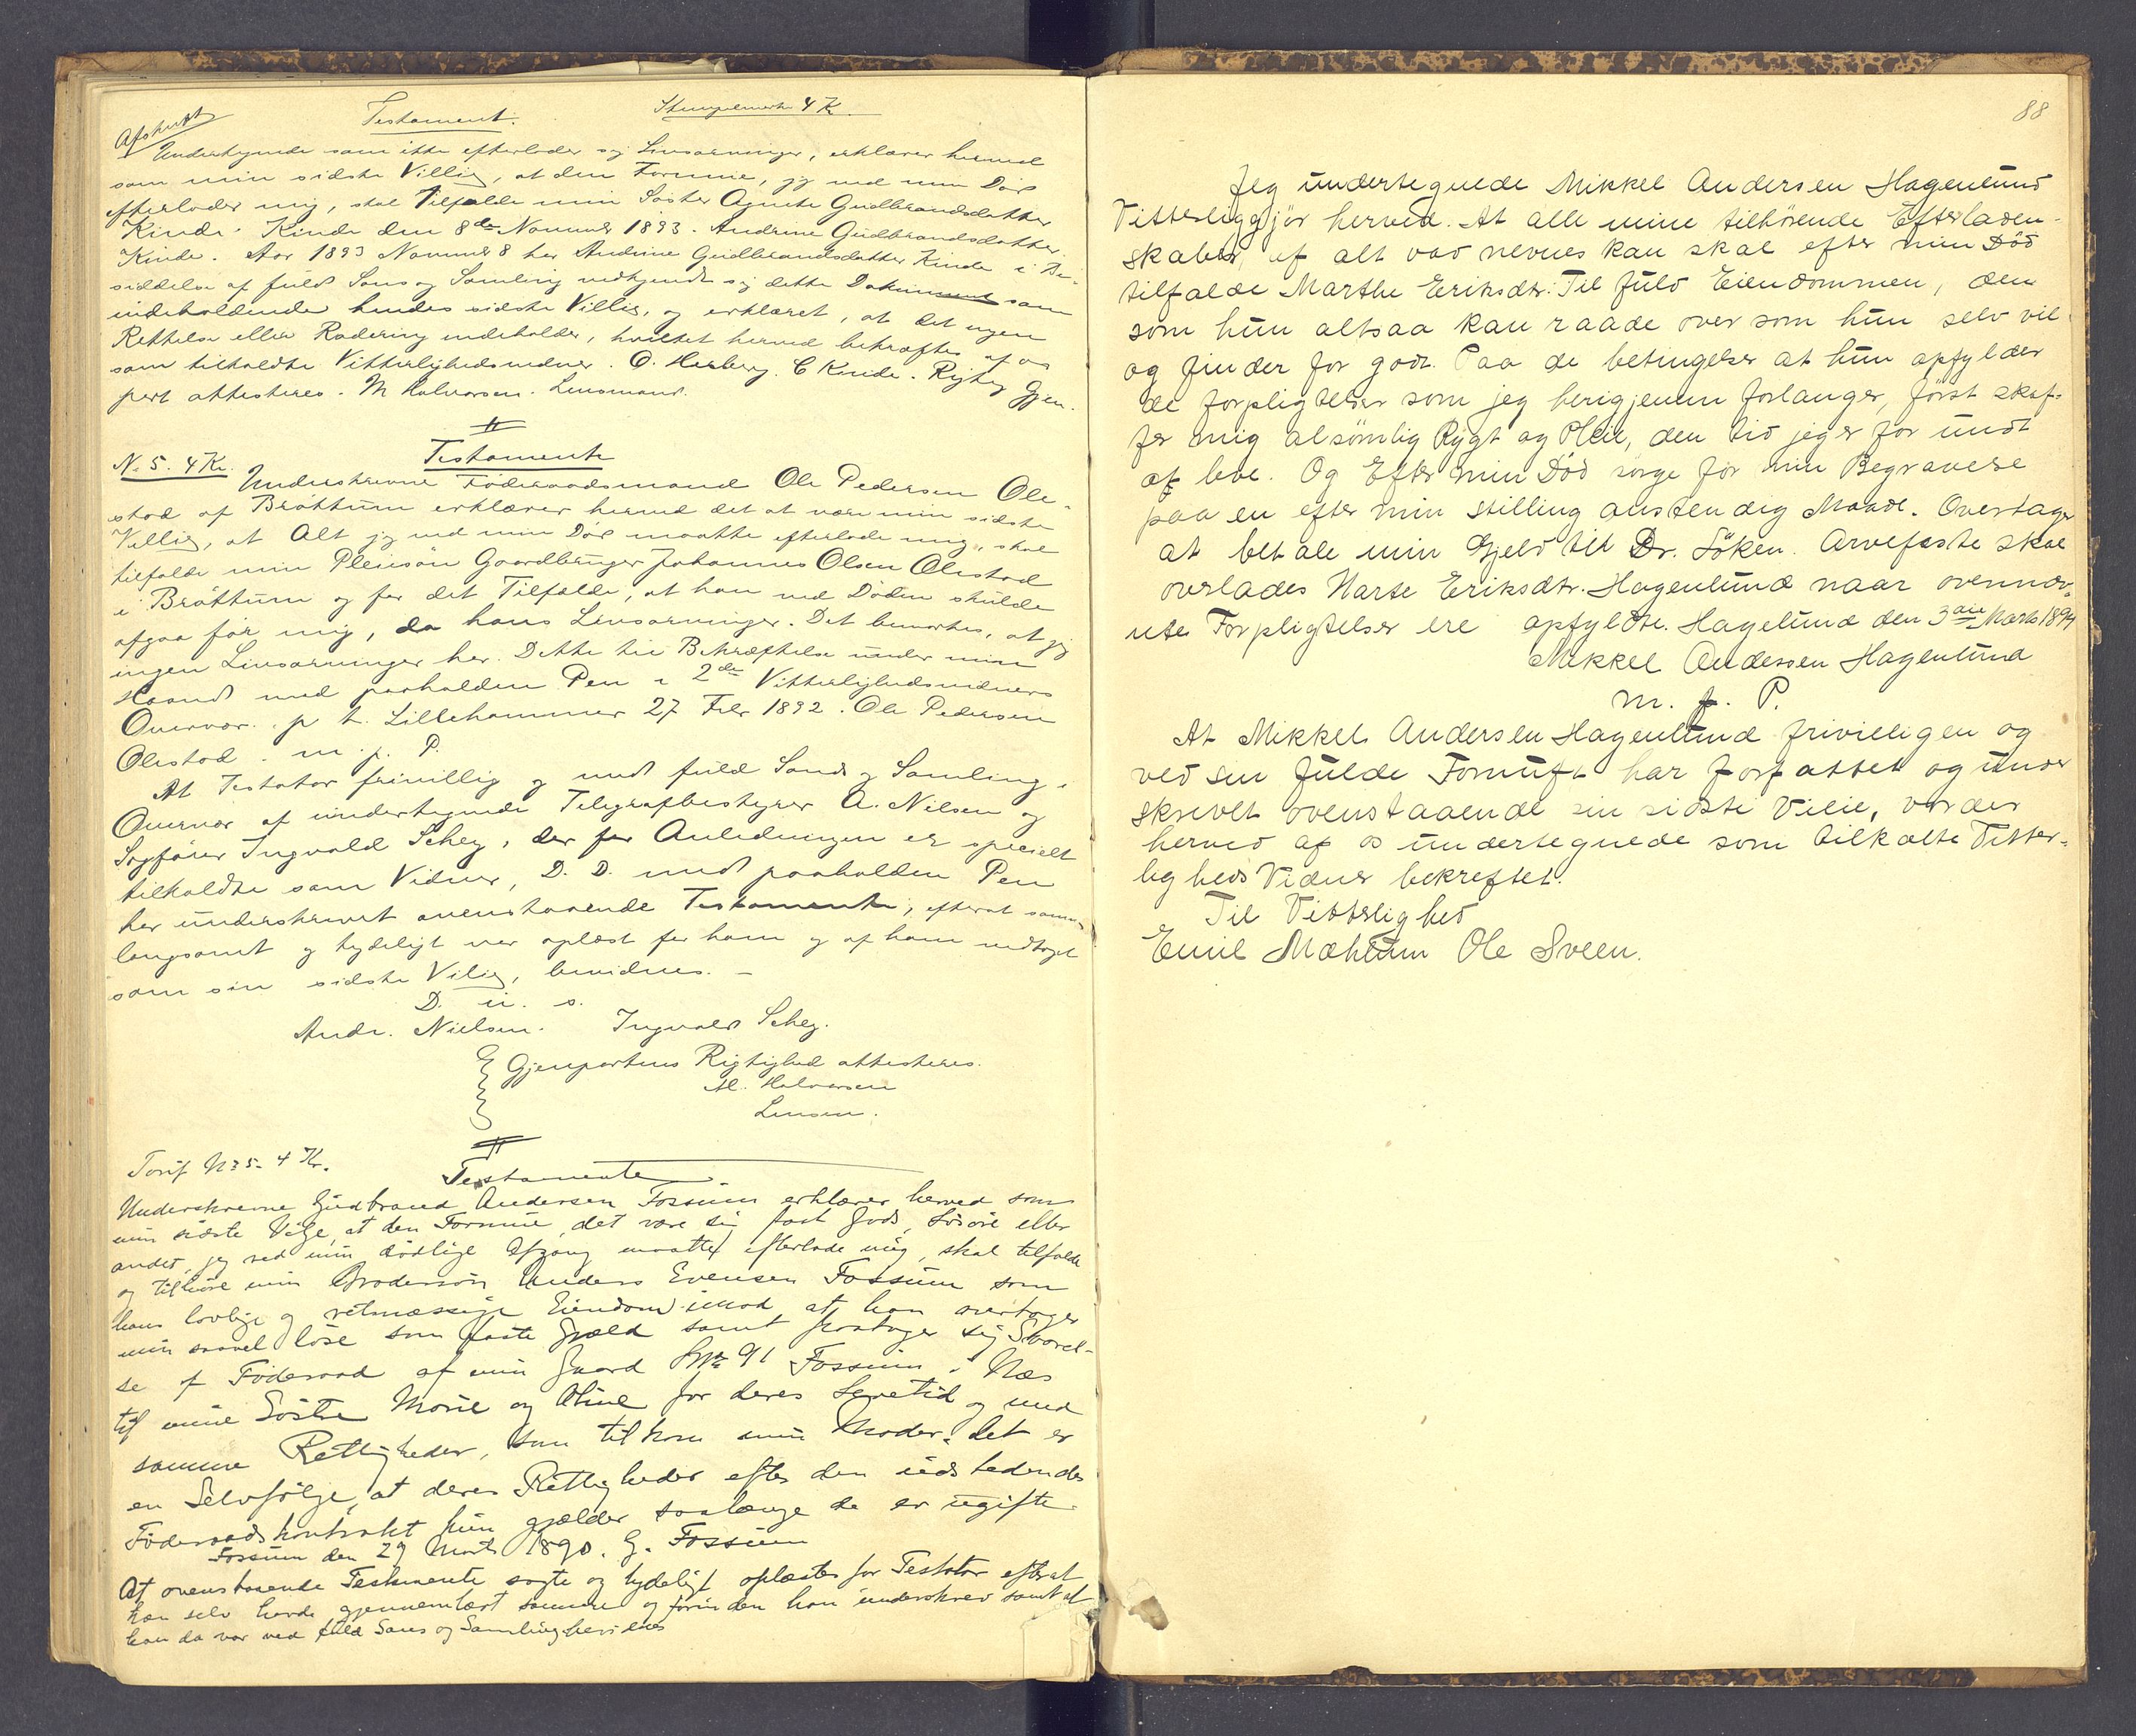 Afskrift
Testament. Stempelmerke 4 K.
Undertegnede som ikke efterlader sig Livsarvinger, erklærer herved
som min sidste Villie, at den Formue, jeg ved min Død
efterlader mig, skal tilfalde min Søster Agnete Gudbrandsdatter
Kinde. Kinde den 8de November 1893. Andrine Gudbrandsdatter
Kinde. Aar 1893 November 8 har Andrine Gudbrandsdatter Kinde i Be-
siddelse af fuld Sans og Samling vedkjendt sig dette Dokument som
indeholdende hendes sidste Villie, og erklæret, at det ingen
Rettelse eller Radering indeholder, hvilket herved bekræftes af os
som tilkaldte Vitterlighedsvidner. O. Herberg. C Kinde. Rigtig Gjen-
part attesteres. M Halvorsen. Lensmand.
No 5. 4 Kr. Testamente
Underskrevne Føderaadsmand Ole Pedersen Ole-
stad af Brøttum erklærer herved det at være min sidste
Villie, at Alt jeg ved min Død maatte efterlade mig, skal
tilfalde min Pleiesøn Gaardbruger Johannes Olsen Olestad
i Brøttum og for det Tilfælde, at han ved Døden skulde
afgaa før mig, da hans Livsarvinger. Det bemærkes, at jeg
ingen Livsarvinger har. Dette til Bekræftelse under min
Haand med paaholden Pen i 2de Vitterlighedsvidners
Overvær. p t. Lillehammer 27 Febr 1892. Ole Pedersen
Olestad. m. p. P.
At Testator frivillig og med fuld Sands og Samling i
Overvær af undertegnede Telegrafbestyrer A. Nilsen og
Sagfører Ingvald Schey, der for Anledningen er specielt
tilkaldte som Vidner, D. D. med paaholden Pen
har underskrevet ovenstaaende Testamente, efterat samme
langsomt og tydeligt var oplæst for ham og af ham vedtaget
som sin sidste Vilie, bevidnes. –
D. u. s.
Andr. Nielsen. Ingvald Schey.
Gjenpartens Rigtighed attesteres.
M. Halvorsen
Lensm.
Tarif No 5 - 4 Kr.
Testamente
Underskrevne Gudbrand Andersen Fossum erklærer herved som
min sidste Vilje, at den Formue, det være sig fast Gods, Løsøre eller
andet, jeg ved min dødlige Afgang maatte efterlade mig, skal tilfalde
og tilhøre min Brodersøn Anders Evensen Fossum som
hans lovlige og retmæssige Eiendom imod at han overtager
min saavel løse som faste Gjæld samt paatager sig Svarel-
se af Føderaad af min Gaard No 91 Fossum i Næs
til mine Søstre Marie og Oline for deres Levetid og med
samme Rettigheder, som tilkom min Moder. Det er
en Selvfølge, at deres Rettigheder efter den udstedende
Føderaadskontrakt kun gjælder saalænge de er ugifte.
Fossum den 29 Marts 1890. G. Fossum
At ovenstaaende Testamente sagte og tydeligt oplæstes for Testator efterat
han selv havde gjennemlæst samme og førinden han underskrev samt at
han da var ved fuld Sans og Samling bevidnes
88
Jeg undertegnede Mikkel Andersen Hagenlund
Vitterliggjør herved. At alle mine tilhørende Efterladen-
skaber, af alt vad nevnes kan skal efter min Død
tilfalde Marthe Eriksdtr. Til fuld Eiendommen, den
som hun altsaa kan raade over som hun selv vil
og finder for godt. Paa de betingelser at hun opfylder
de forpligtelser som jeg herigjennem forlanger, først skaf-
fer mig alsømlig Rygt og Pleie, den tid jeg er før undt
at leve. Og Efter min Død sørge for min Begravelse
paa en efter min stilling anstendig Maade. Overtager
at betale min Gjeld til Dr. Løken. Arvefæste skal
overlades Marte Eriksdtr. Hagenlund naar ovennæv-
nte Forpligtelser ere opfyldte. Hagelund den 3die Marts 1894
Mikkel Andersen Hagenlund
m. p. P.
At Mikkel Andersen Hagenlund frivilligen og
ved sin fulde Fornuft har forfattet og under
skrevet ovenstaaende sin sidste Vilie, vorder
herved af os undertegnede som tilkalte Vitter-
ligheds Vidner bekreftet.
Til Vitterlighed
Emil Mæhlum Ole Sveen.